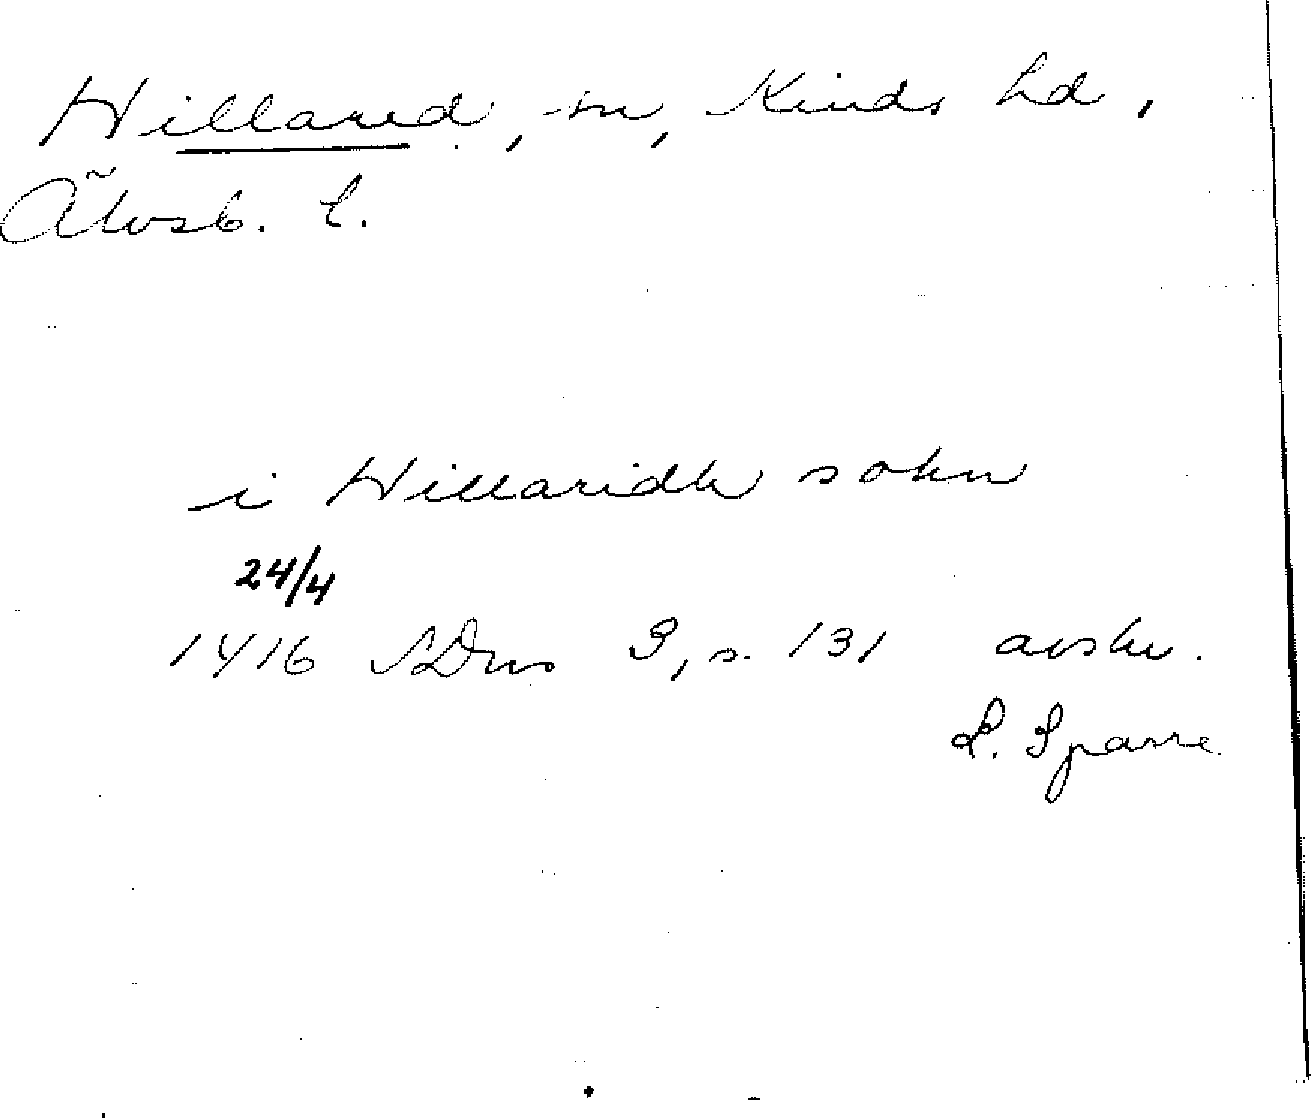 Hillared, sn, Kinds hd,
Älvsb. l.
i Hillaridh sokn
24/4
1416 SDns 3, s. 131 avskr.
L. Sparre